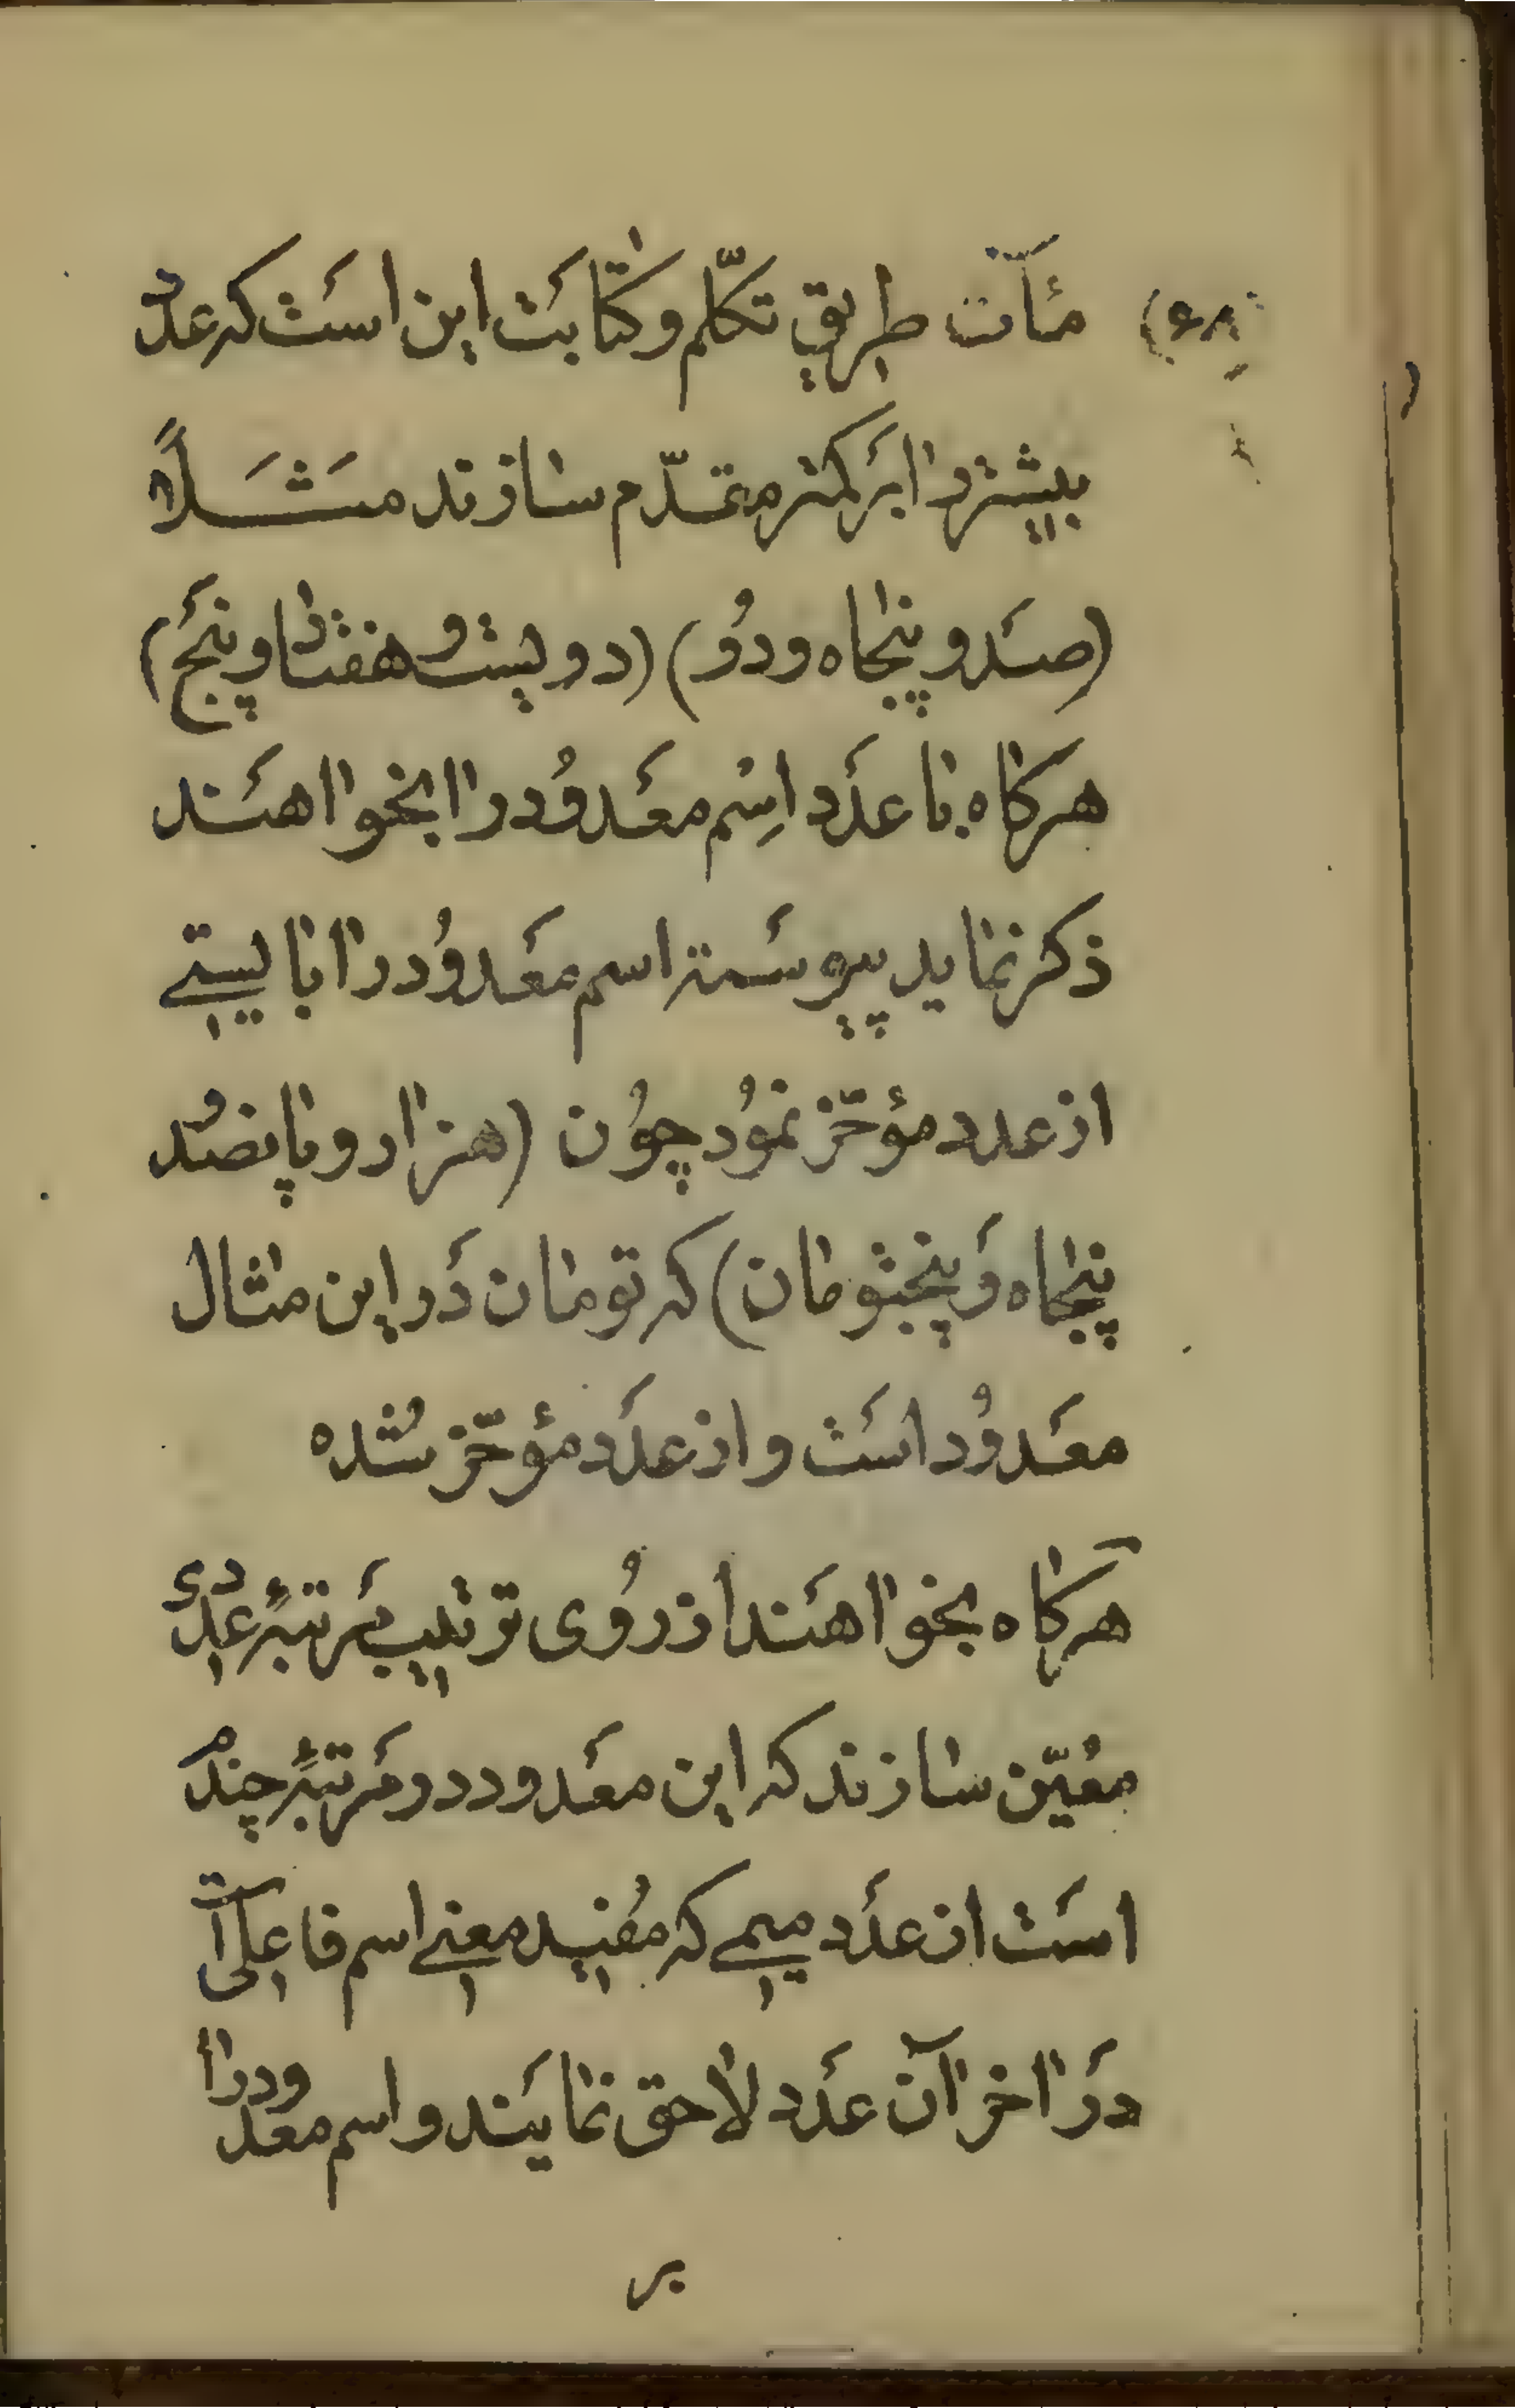 مئآت طریق تکلّم و کتابت این است که عدد
بیشتر را بر کمتر مقدّم سازند مَثَلاً
(صَد و پنجاه و دُو) (دویست و هفتاد و پنج)
هرکاه با عدَد اِسْم معَدوُد را بخواهَند
ذکر نماید پیوسَته اسم معَدوُد را بایستے
از عدد مؤخّر نموُد چوُن (هزار و پانصَد و
پنجاه وَ پنجتومان) که تومان دَر این مثال
معَدوُد است و از عدَد مؤخّر شُده
هرکاه بخواهَند از رُوی ترتیب مَرتبۀ عددی
مُعیّن سازند که این معَدود در مَرتبۀ چندم
است از عدَد میمے که مُفید معنے اسم فاعلی است
دَر اخر آن عدَد لاحق نمایَند و اسم معدود را
بر